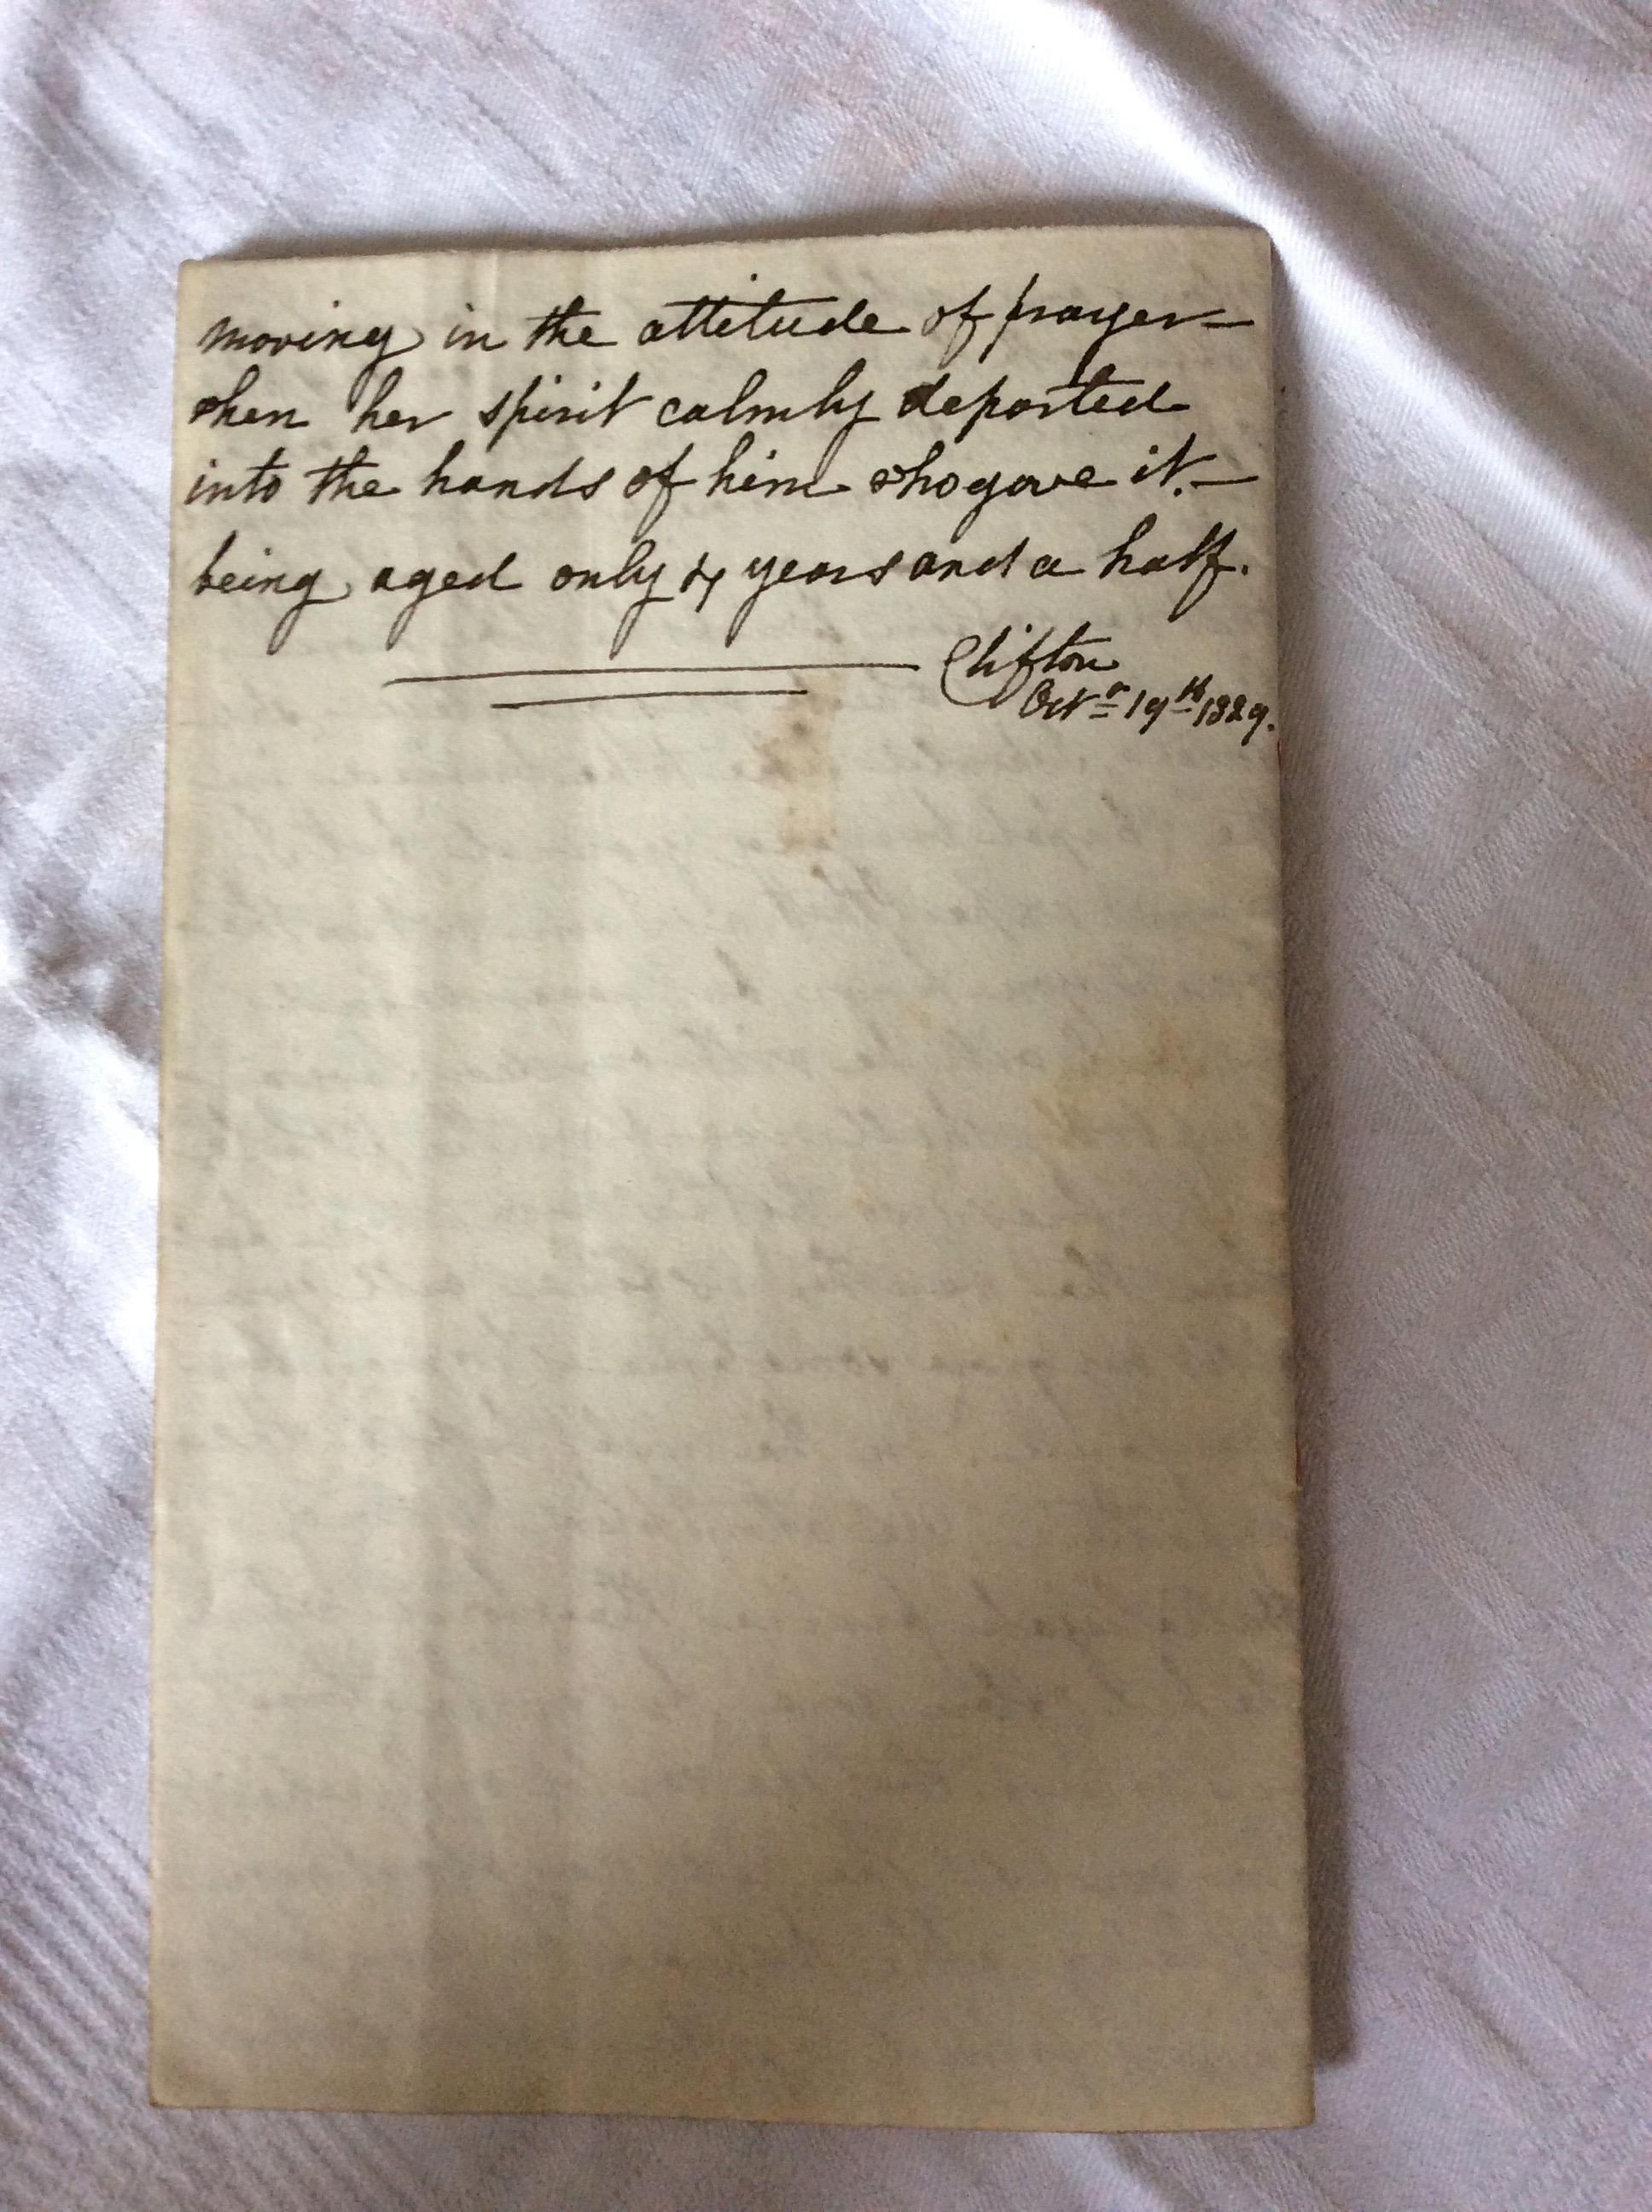 moving in the attitude of prayer —
when her spirit calmly departed
into the hands of him who gave it. —
being aged only 4 years and a half.
Clifton
Octr 19th 1829.